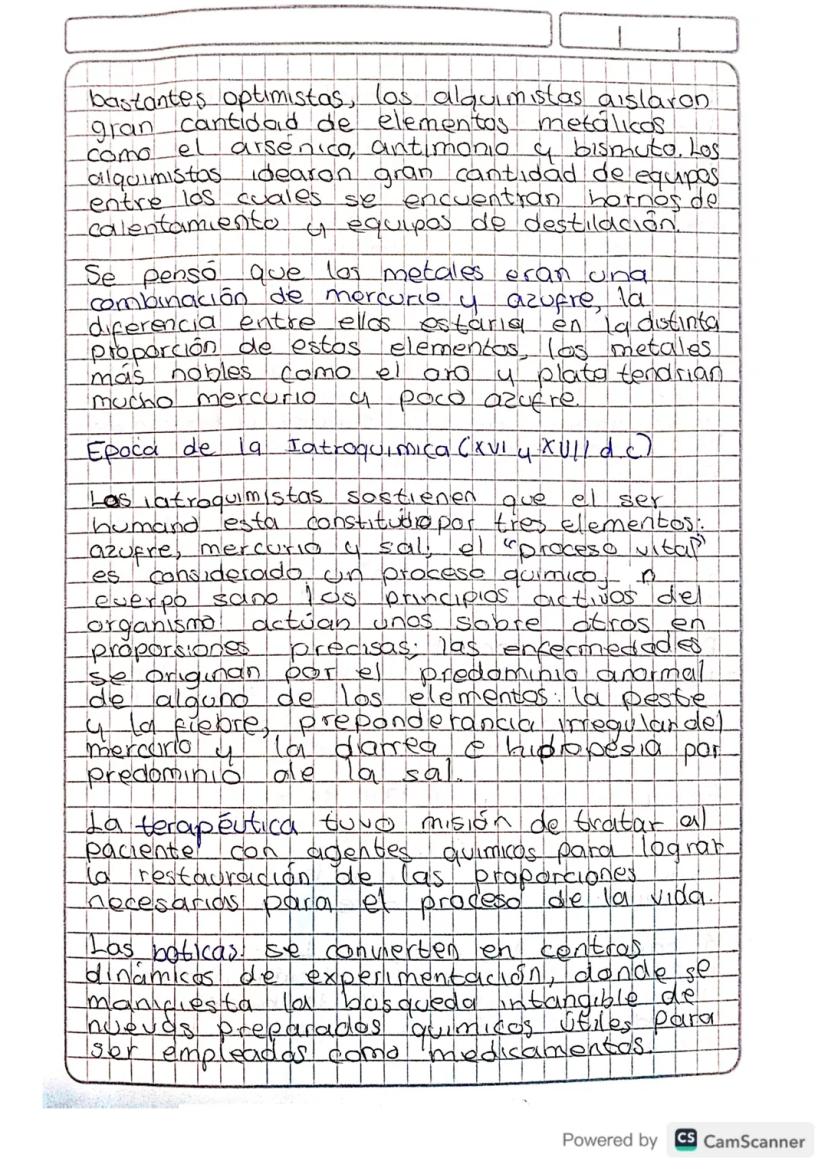 bastantes optimistas, los alquimistas aislaron
gran cantidad de elementos metálicos
como el arsénico, antimonio y bismuto. Los
alquimistas idearon gran cantidad de equipos
entre los cuales se encuentran hornos de
calentamiento y equipos de destilación.
Se pensó que los metales eran una
combinación de mercurio y azufre, la
diferencia entre ellos estaria en la distinta
proporción de estos elementos, los metales
más nobles como el oro y plata tendrian
mucho mercurio y poco azufre.
Epoca de la Iatroquimica (XVI y XVII d.c)
Los iatroquimistas sostienen que el ser
humano esta constituido por tres elementos:
azufre, mercurio y sal; el "proceso vital"
es considerado un proceso químico, n
cuerpo sano los principios activos del
organismo actúan unos sobre otros en
proporsiones precisas; las enfermedades
se originan por el predominio anormal
de alguno de los elementos: la peste
y la fiebre, preponderancia irregular del
mercurio y la diarrea e hidropesia por
predominio de la sal.
La terapéutica tuvo misión de tratar al
paciente con agentes químicos para lograr
la restauración de las proporciones
necesarias para el proceso de la vida.
Las boticas: se convierten en centros
dinámicos de experimentación, donde se
manifiesta la busqueda intangible de
nuevos preparados químicos útiles para
ser empleados como medicamentos.
Powered by CS CamScanner